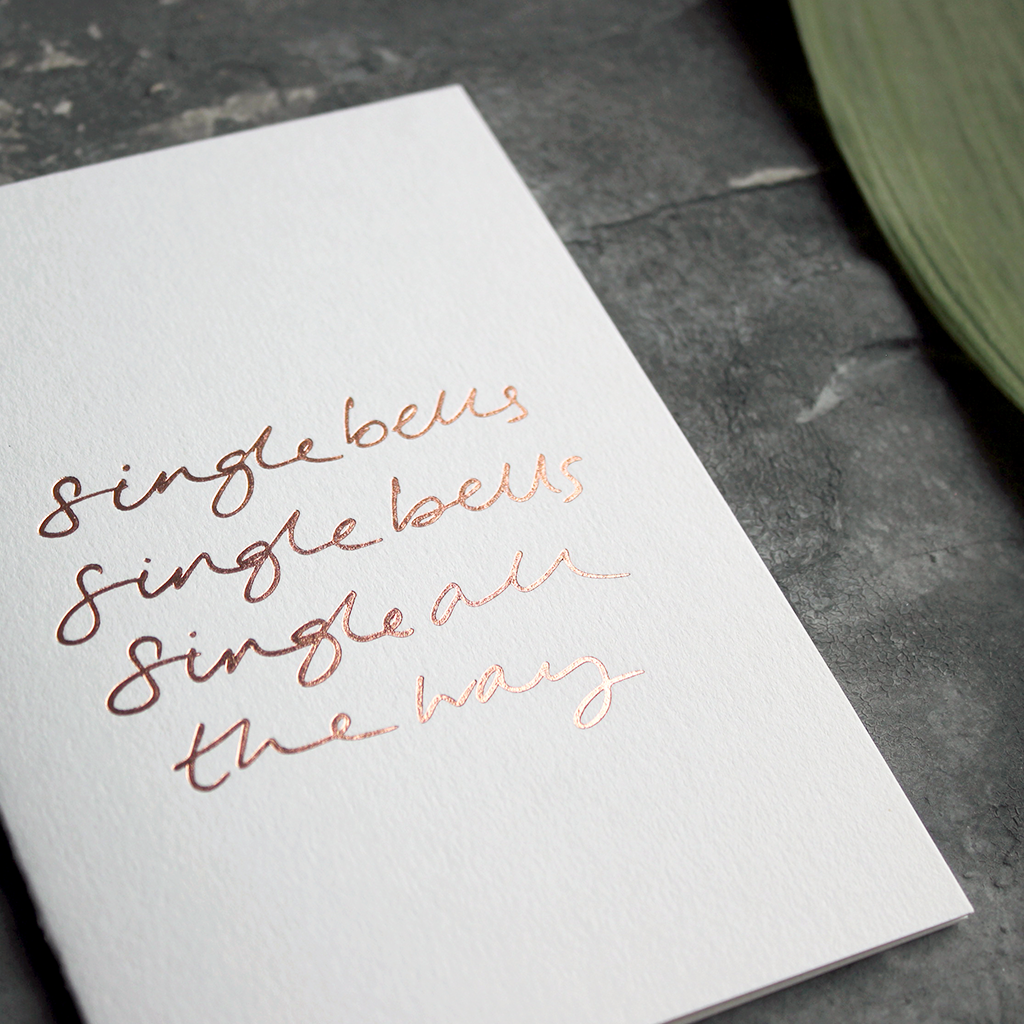 single bells
single bells
single all
the way